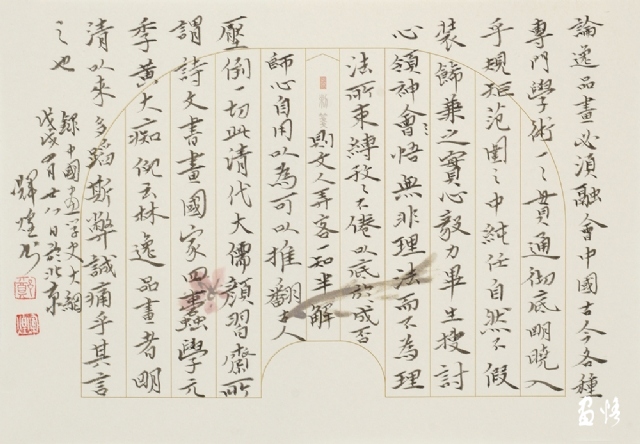 論逸品畫必須融會中國古今各種
專門學術一一貫通彻底明曉入
乎規矩範圍之中純任自然不假
装飾兼之實心毅力畢生搜討
心領神會會悟無非理法而不為理
法所束縛孜孜不倦以底於成否
則文人弄客一知半解
師心自用以為可以推翻古人
壓倒一切此清代大儒顏習齋所
謂詩文書畫國家四蠹學元
季黃大痴倪雲林逸品畫者明
清以來多蹈斯弊誠痛乎其言
之也
錄中國畫學史大綱
戊戌四月廿八日於北京